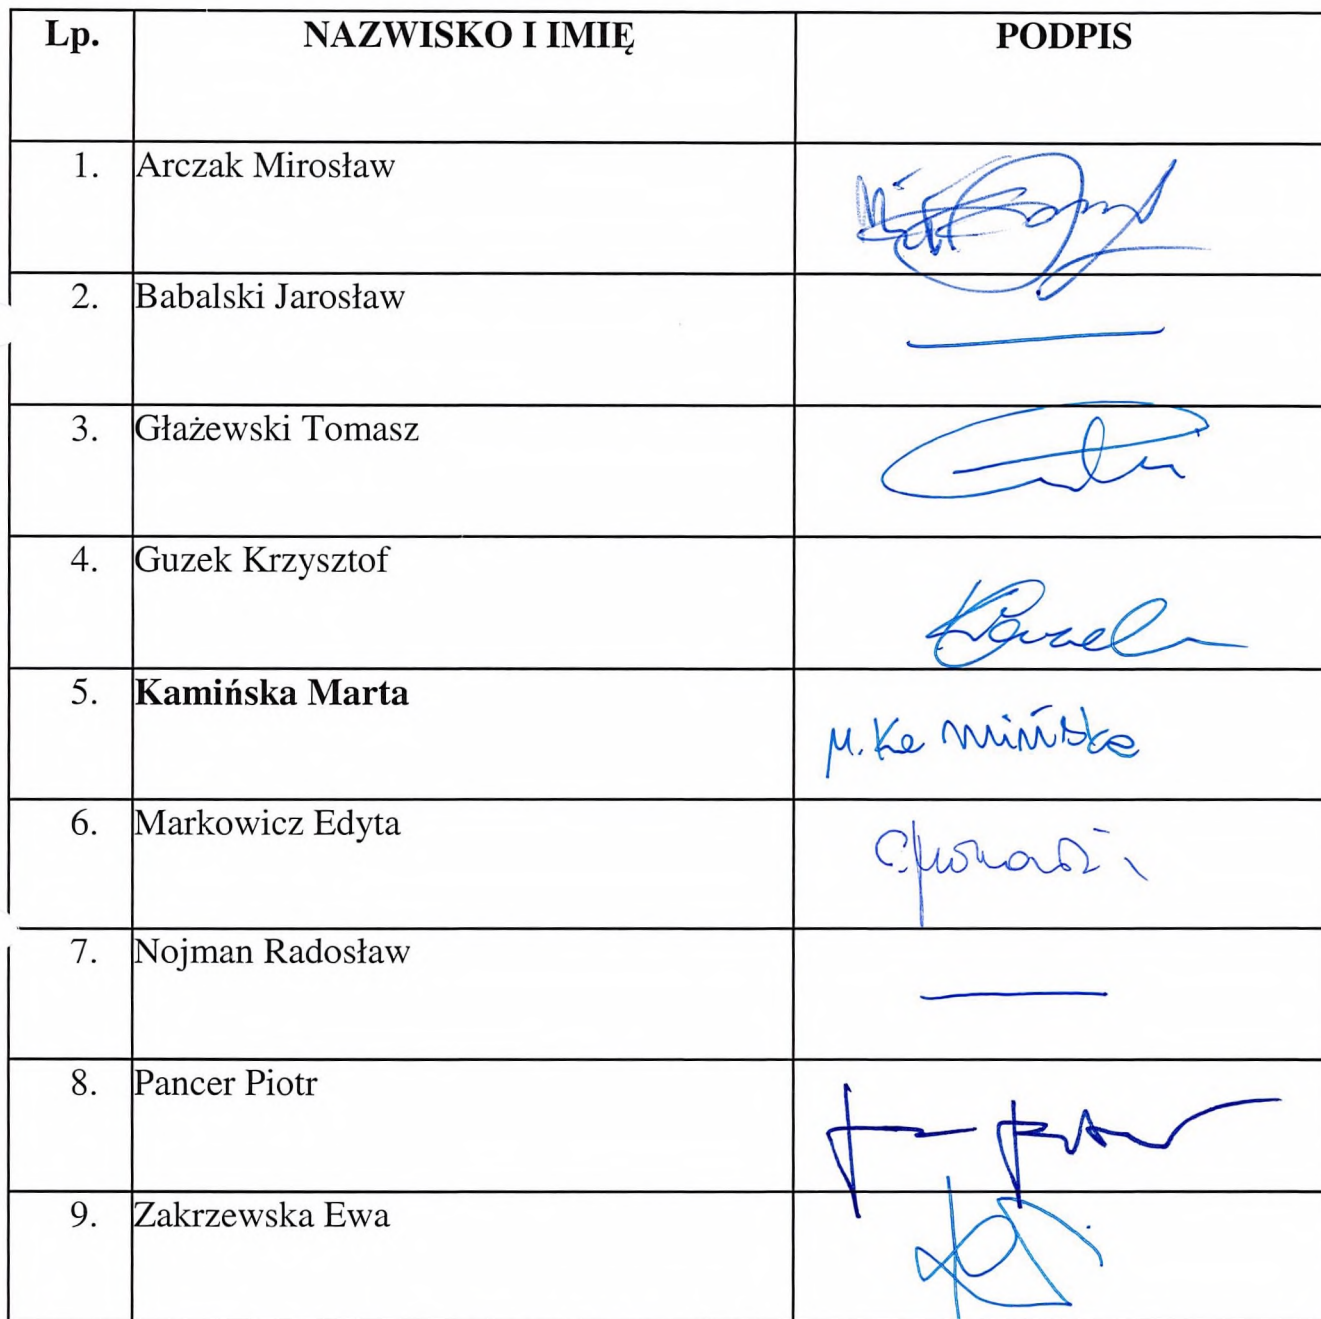 Lp. NAZWISKO I IMIĘ PODPIS
1. Arczak Mirosław
2. Babalski Jarosław
3. Głażewski Tomasz
4. Guzek Krzysztof
5. Kamińska Marta
M. Kamińska
6. Markowicz Edyta
7. Nojman Radosław
8. Pancer Piotr
9. Zakrzewska Ewa